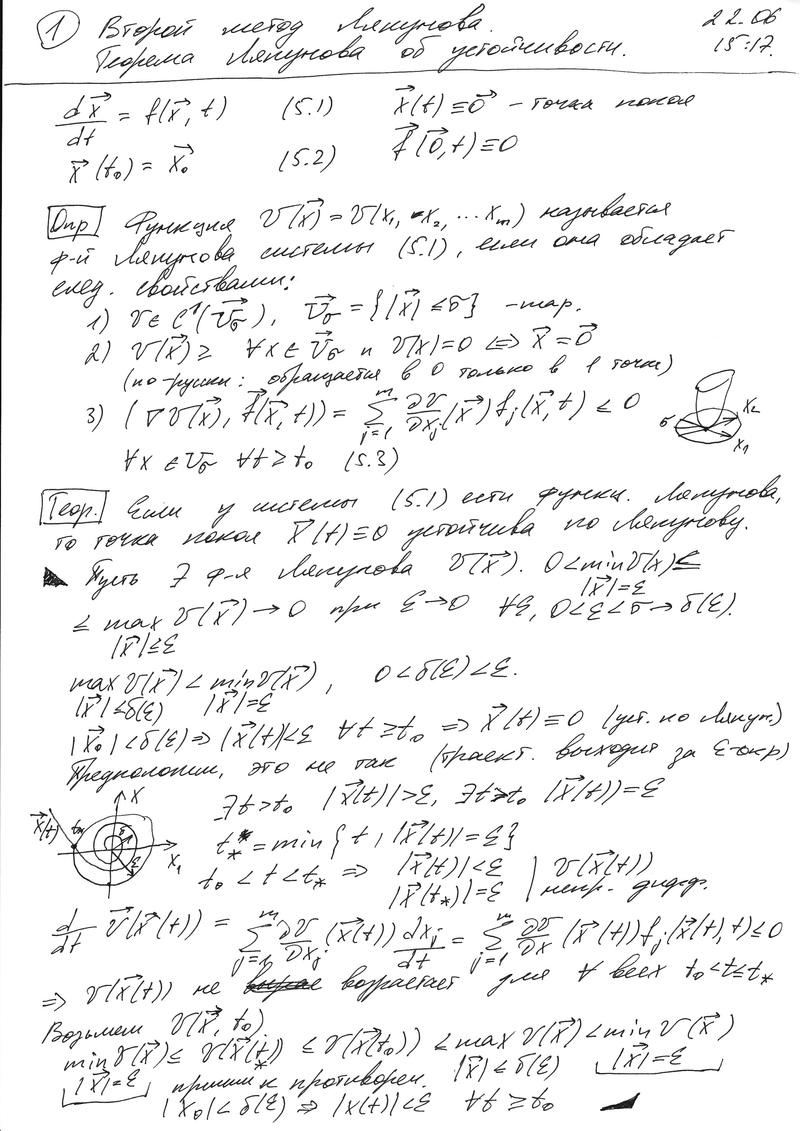 ① Второй метод Ляпунова. 22.06
Теорема Ляпунова об устойчивости. 15:17.
dx⃗/dt = f(x⃗, t) (5.1) x⃗(t) ≡ 0⃗ – точка покоя
x⃗(t₀) = x⃗₀ (5.2) f⃗(0⃗, t) ≡ 0
Опр Функция V(x⃗) = V(x₁, x₂, ... xₘ) называется
ф-й Ляпунова системы (5.1), если она обладает
след. свойствами:
1) V ∈ C¹(V̄σ), V̄σ = {|x⃗| ≤ σ} – шар.
2) V(x⃗) ≥ ∀x ∈ V̄σ и V(x) = 0 ⇔ x⃗ = 0⃗
(по-русски: обращается в 0 только в 1 точке)
3) (∇V(x⃗), f⃗(x⃗, t)) = Σ_{j=1}^{m} ∂V/∂xⱼ (x⃗) fⱼ(x⃗, t) ≤ 0
σ x₂ x₁
∀x ∈ Vσ ∀t ≥ t₀ (5.3)
Теор. Если у системы (5.1) есть функц. Ляпунова,
то точка покоя x⃗(t) ≡ 0 устойчива по Ляпунову.
Пусть ∃ ф-я Ляпунова V(x⃗). 0 < min V(x) ≤
|x⃗|=ε
≤ max V(x⃗) → 0 при ε → 0 ∀ε, 0 < ε < σ → δ(ε).
|x⃗| ≤ ε
max V(x⃗) < min V(x⃗), 0 < δ(ε) < ε.
|x⃗| < δ(ε) |x⃗| = ε
|x⃗₀| < δ(ε) ⇒ |x⃗(t)| < ε ∀t ≥ t₀ ⇒ x⃗(t) ≡ 0 (уст. по Ляпун.)
Предположим, это не так (траект. выходит за ε-окр)
∃t > t₀ |x⃗(t)| > ε, ∃t > t₀ |x⃗(t)| = ε
x⃗(t) x x₁ ε
t* = min{t, |x⃗(t)| = ε}
t₀ < t < t* ⇒ |x⃗(t)| < ε | V(x⃗(t))
|x⃗(t*)| = ε | непр. дифф.
d/dt V(x⃗(t)) = Σ_{j=1}^{m} ∂V/∂xⱼ (x⃗(t)) dxⱼ/dt = Σ_{j=1}^{m} ∂V/∂x (x⃗(t)) fⱼ(x⃗(t), t) ≤ 0
⇒ V(x⃗(t)) не возрастает для ∀ всех t₀ < t ≤ t*
Возьмем V(x⃗, t₀)
min V(x⃗) ≤ V(x⃗(t*)) ≤ V(x⃗(t₀)) < max V(x⃗) < min V(x⃗)
|x⃗| = ε пришли к противореч. |x⃗| < δ(ε) |x⃗| = ε
|x₀| < δ(ε) ⇒ |x(t)| < ε ∀t ≥ t₀